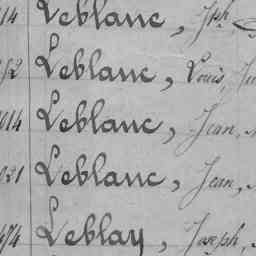 14 Leblanc, Jph,
Leblanc, Louis,
014 Leblanc, Jean,
Leblanc, Jean,
Leblay, Joseph,